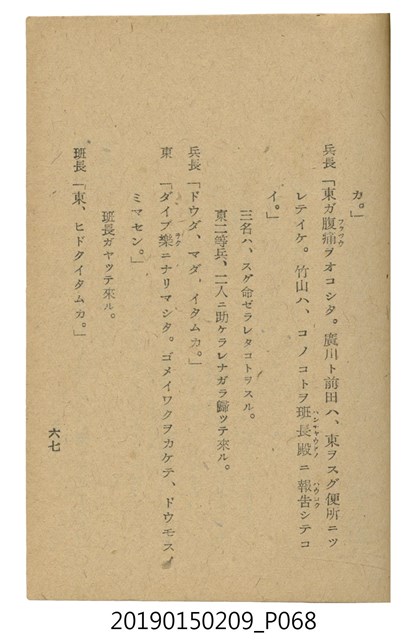 カ。」
兵長「東ガ腹痛ヲオコシタ。廣川ト前田ハ、東ヲスグ便所ニツ
レテイケ。竹山ハ、コノコトヲ班長殿ニ報告シテコ
イ。」
三名ハ、スグ命ゼラレタコトヲスル。
東二等兵、二人ニ助ケラレナガラ歸ツテ來ル。
兵長「ドウダ、マダ、イタムカ。」
東「ダイブ樂ニナリマシタ。ゴメイワクヲカケテ、ドウモスノ
ミマセン。」
班長ガヤツテ來ル。
班長「東、ヒドクイタムカ。」
六七
20190150209_P068